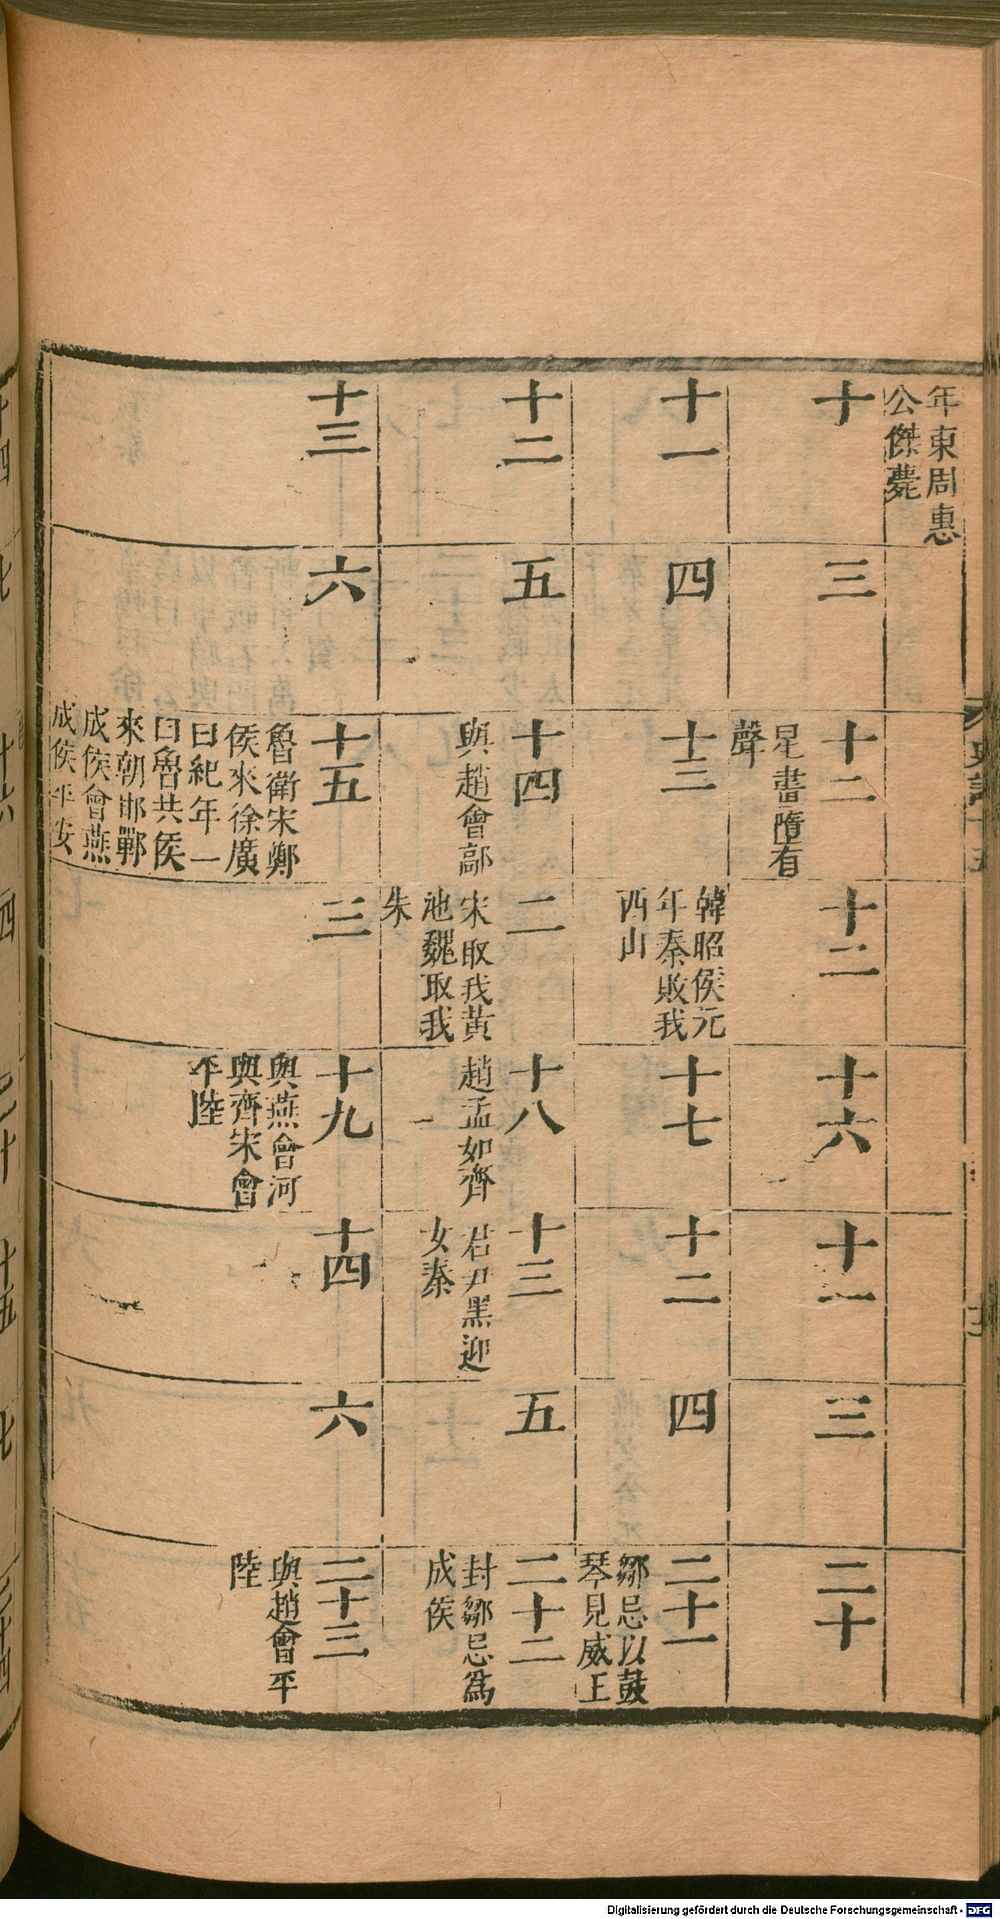 年東周惠
公傑薨
十
三
十二
星晝隋有
聲
十二
十六
十一
三
二十
十一
四
十三
韓昭侯元
年秦敗我
西山
十七
十二
四
二十一
鄒忌以鼓
琴見威王
十二
五
十四
與趙會鄗
二
宋取我黃
池魏取我
朱
十八
趙孟如齊
十三
君尹黑迎
女秦
五
二十二
封鄒忌為
成侯
十三
六
十五
魯衛宋鄭
侯來徐廣
曰紀年一
曰魯共侯
來朝邯鄲
成侯會燕
成侯平安
三
十九
與燕會河
與齊宋會
平陸
十四
六
二十三
與趙會平
陸
Digitalisierung gefördert durch die Deutsche Forschungsgemeinschaft - DFG